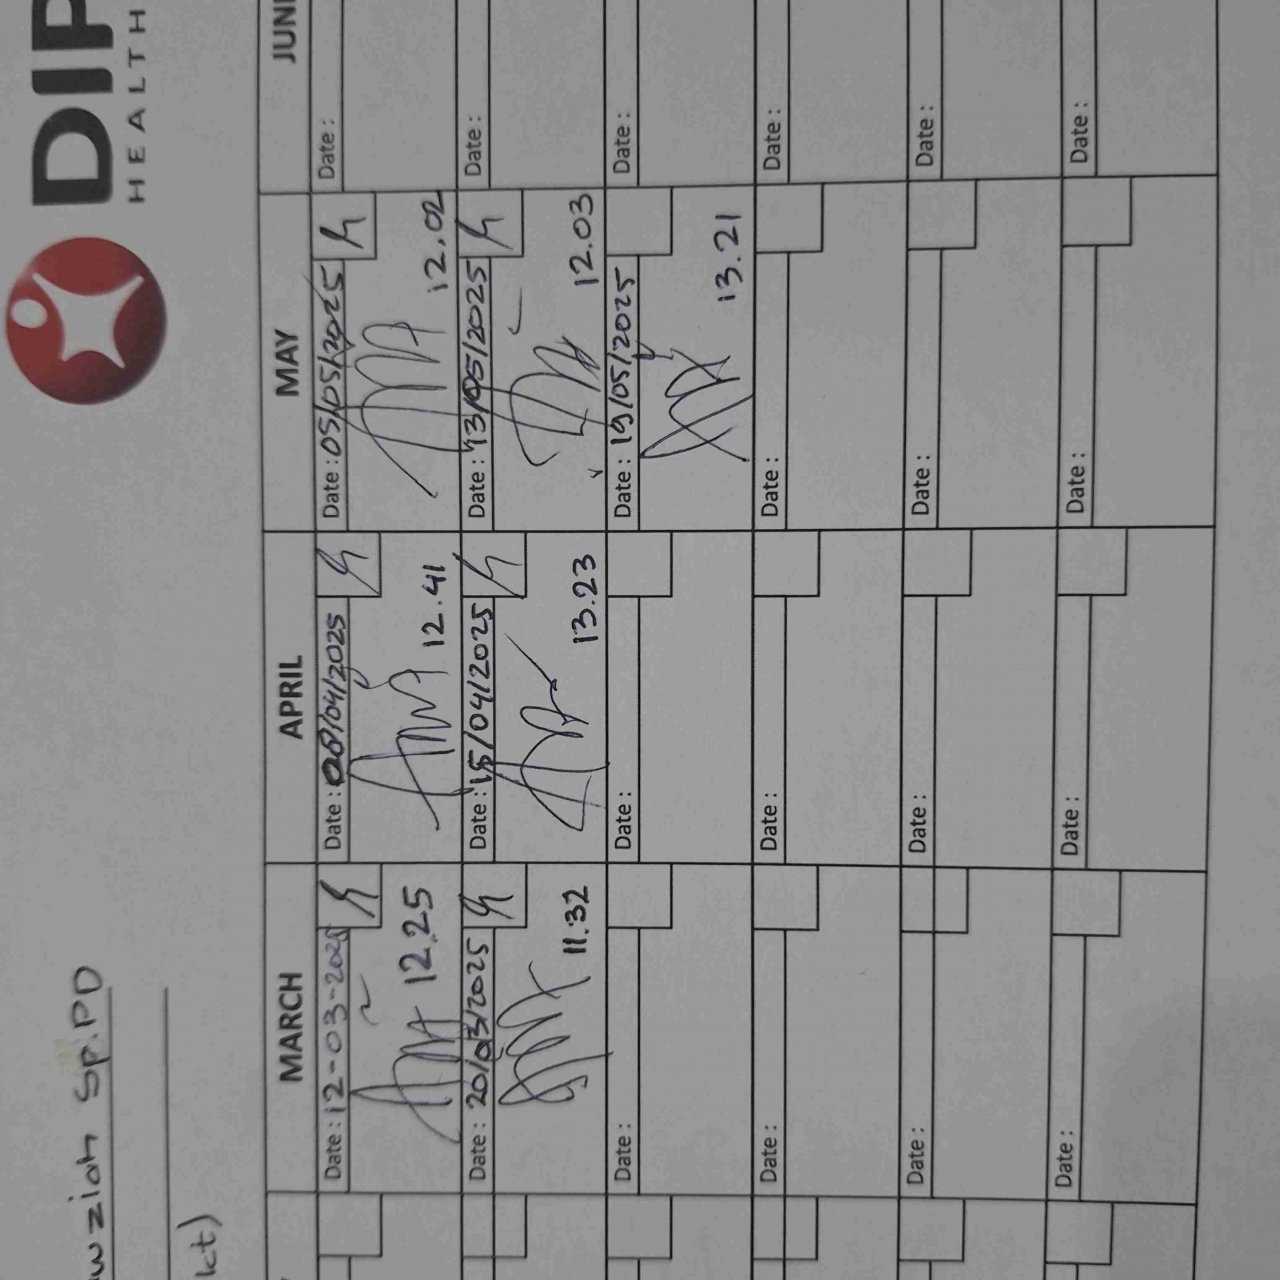 DIP
HEALTH
wziah Sp.PD
kt)
MARCH
APRIL
MAY
JUN
Date : 12-03-2025
12.25
Date : 08/04/2025
12.41
Date : 05/05/2025
12.02
Date :
Date : 20/03/2025
11.32
Date : 15/04/2025
13.23
Date : 13/05/2025
12.03
Date :
Date :
Date :
Date : 19/05/2025
13.21
Date :
Date :
Date :
Date :
Date :
Date :
Date :
Date :
Date :
Date :
Date :
Date :
Date :